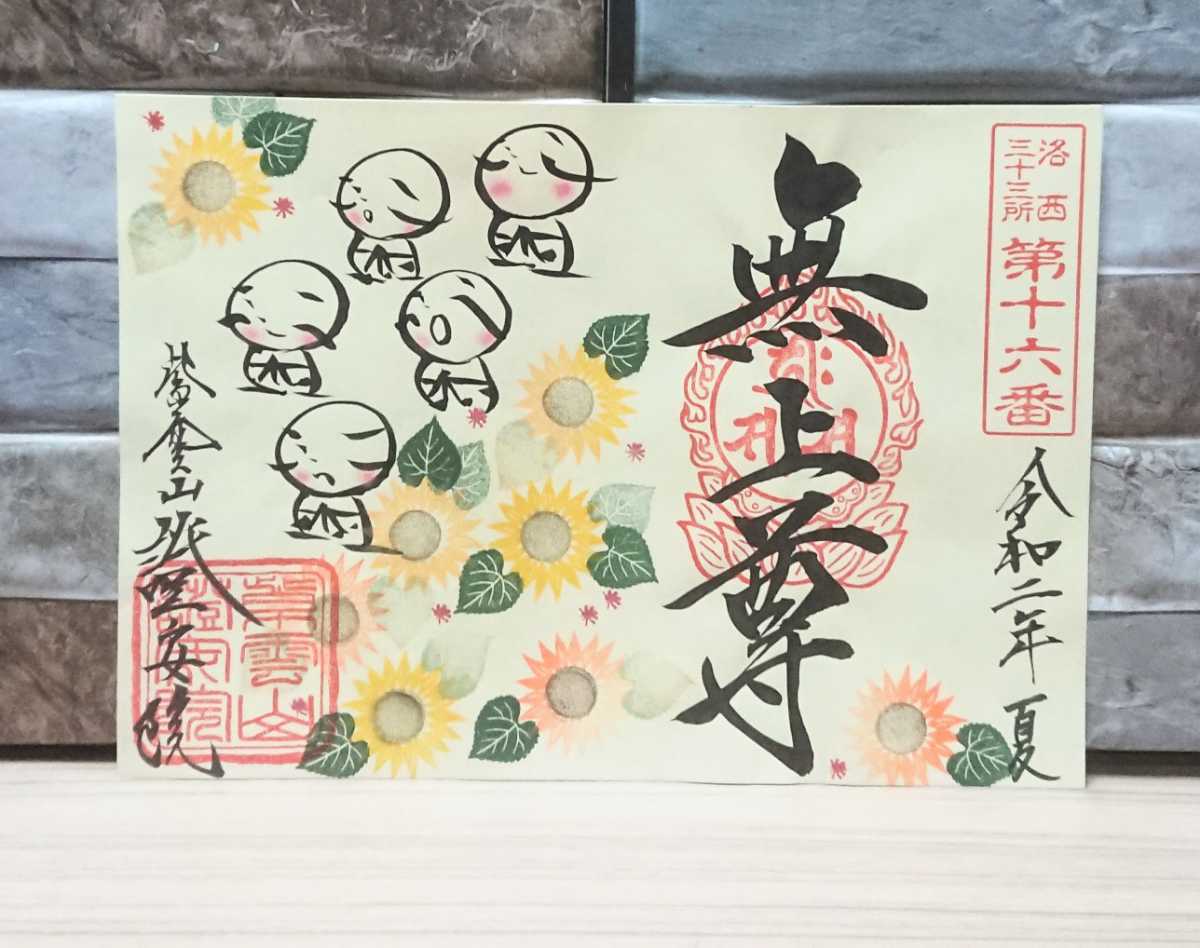 洛西
三十三所
第十六番
令和二年 夏
無上尊
紫雲山 證安院
紫雲山
證安院